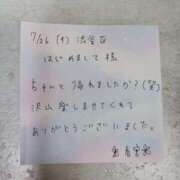 7/26 (木) 渋谷店
はじめまして様
ちゃんと帰れましたか?(笑)
沢山楽しませてくれて
ありがとうございました。